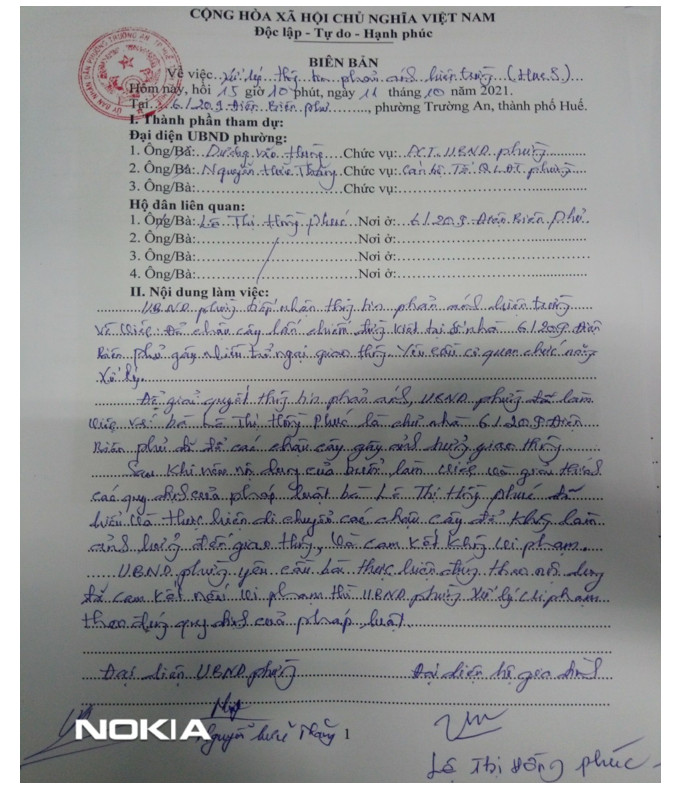 CỘNG HÒA XÃ HỘI CHỦ NGHĨA VIỆT NAM
Độc lập - Tự do - Hạnh phúc
BIÊN BẢN
Về việc xử lý thông tin phản ánh hiện trường (Hue.S)
Hôm nay, hồi 15 giờ 10 phút, ngày 11 tháng 10 năm 2021.
Tại 6/209 Điện Biên Phủ, phường Trường An, thành phố Huế.
I. Thành phần tham dự:
Đại diện UBND phường:
1. Ông/Bà: Dương Chức vụ: PCT. UBND phường
2. Ông/Bà: Nguyễn Hữu Thắng Chức vụ: Cán bộ Tổ QLĐT phường
3. Ông/Bà: Chức vụ:
Hộ dân liên quan:
1. Ông/Bà: Lê Thị Hồng Phúc Nơi ở: 6/209 Điện Biên Phủ
2. Ông/Bà: Nơi ở:
3. Ông/Bà: Nơi ở:
4. Ông/Bà: Nơi ở:
II. Nội dung làm việc:
UBND phường tiếp nhận thông tin phản ánh hiện trường
về việc để chậu cây lấn chiếm đường kiệt tại số nhà 6/209 Điện
Biên Phủ gây nhiều trở ngại giao thông. Yêu cầu cơ quan chức năng
xử lý.
Để giải quyết thông tin phản ánh, UBND phường đã làm
việc với bà Lê Thị Hồng Phúc là chủ nhà 6/209 Điện
Biên Phủ để các chậu cây gây ảnh hưởng giao thông.
Sau khi nắm nội dung của buổi làm việc và giải thích
các quy định của pháp luật bà Lê Thị Hồng Phúc đã
hiểu và thực hiện di chuyển các chậu cây để không làm
ảnh hưởng đến giao thông, và cam kết không vi phạm.
UBND phường yêu cầu bà thực hiện đúng theo nội dung
đã cam kết nếu vi phạm thì UBND phường xử lý vi phạm
theo đúng quy định của pháp luật.
Đại diện UBND phường Đại diện hộ gia đình
NOKIA
Nguyễn Hữu Thắng 1
Lê Thị Hồng Phúc